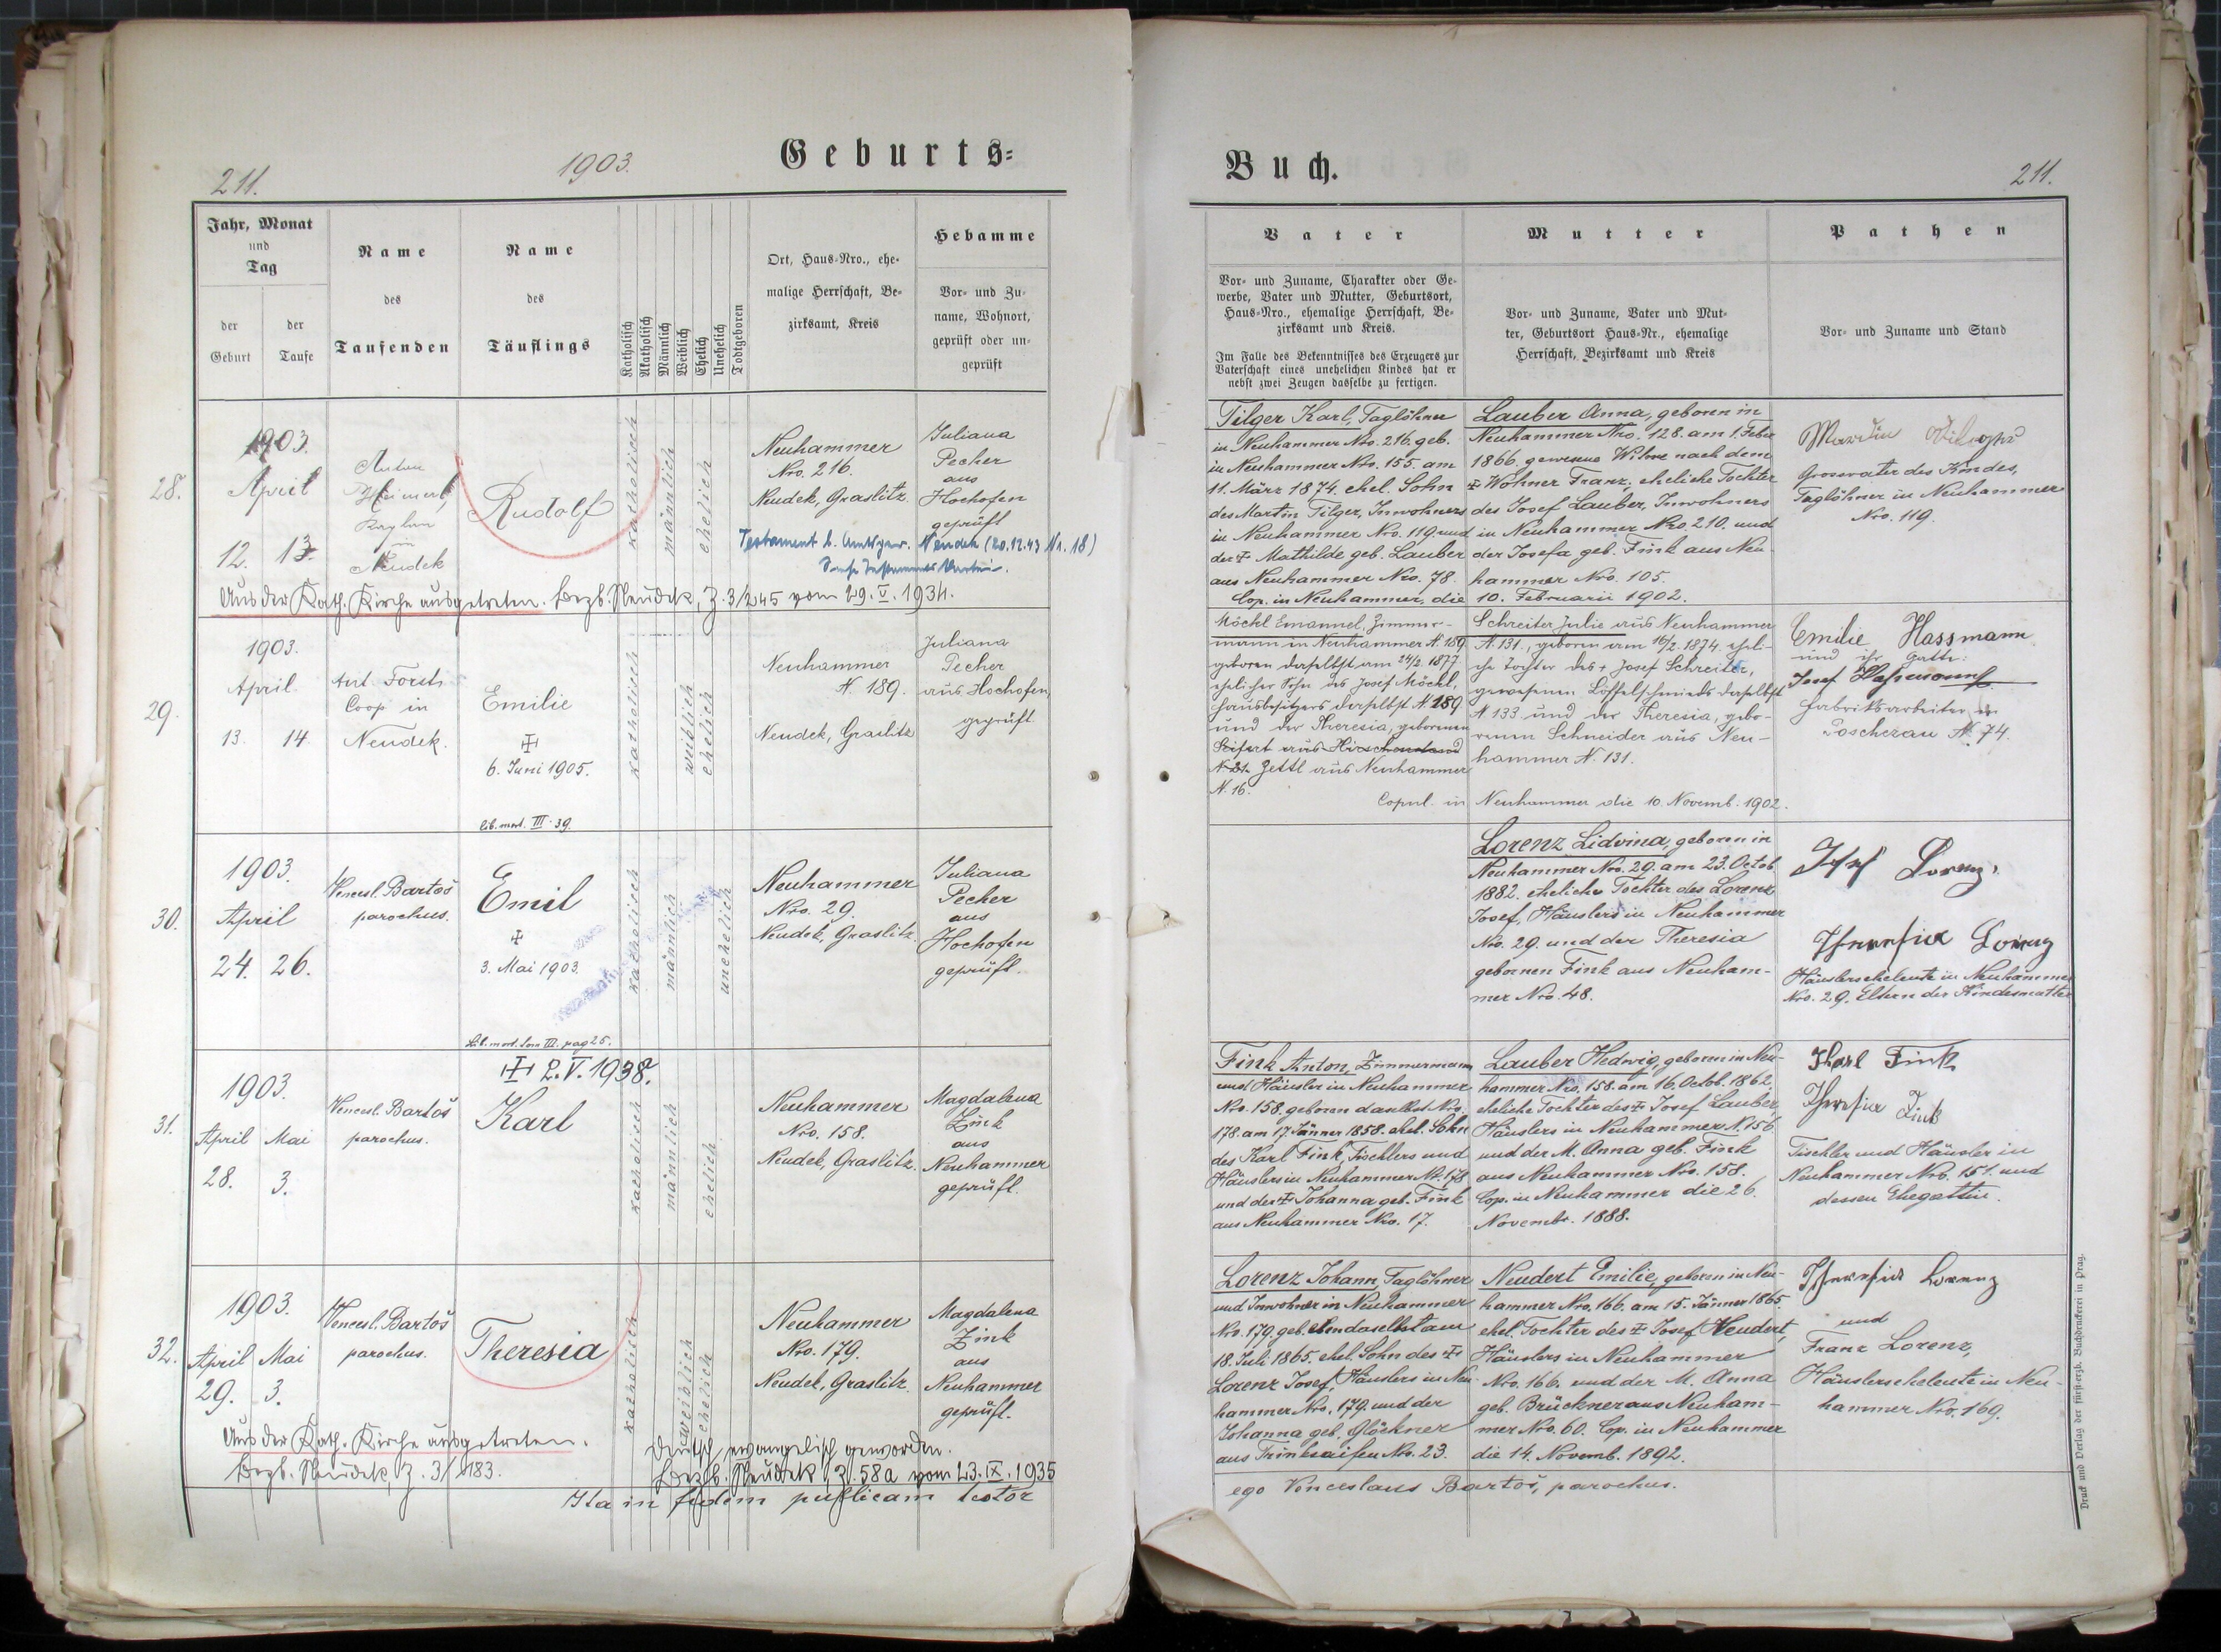 211.
1903.
Geburts=
Jahr, Monat
und
Tag
der
Geburt
der
Taufe
Name
des
Taufenden
Name
des
Täuflings
Katholisch
Akatholisch
Männlich
Weiblich
Ehelich
Unehelich
Todtgeboren
Ort, Haus-Nro., ehe-
malige Herrschaft, Be-
zirksamt, Kreis
Hebamme
Vor- und Zu-
name, Wohnort,
geprüft oder un-
geprüft
28.
1903.
April
12. 13.
Anton
Heimerl,
Kaplan
in
Neudek
Rudolf
katholisch
männlich
ehelich
Neuhammer
Nro. 216.
Neudek, Graslitz.
Juliana
Pecher
aus
Hochofen
geprüft
Testament b. Amtsger. Neudek (20.12.43 N1. 18)
Aus der Kath. Kirche ausgetreten. Bezb. Neudek, Z. 3/245 vom 29. V. 1934.
29.
1903.
April
13. 14.
Ant. Forst
Coop in
Neudek.
Emilie
6. Juni 1905.
lib. mort. III. 39.
katholisch
weiblich
ehelich
Neuhammer
N. 189.
Neudek, Graslitz
Juliana
Pecher
aus Hochofen,
geprüft
30.
1903.
April
24. 26.
Wencesl. Bartoš
parochus.
Emil
3. Mai 1903.
Lib. mort. tom III. pag 25.
katholisch
männlich
unehelich
Neuhammer
Nro. 29.
Neudek, Graslitz.
Juliana
Pecher
aus
Hochofen
geprüft.
31.
1903.
April Mai
28. 3.
Wencesl. Bartoš
parochus.
2. V. 1938.
Karl
katholisch
männlich
ehelich
Neuhammer
Nro. 158.
Neudek, Graslitz.
Magdalena
Zink
aus
Neuhammer
geprüft.
32.
1903.
April Mai
29. 3.
Wencesl. Bartoš
parochus.
Theresia
katholisch
weiblich
ehelich
Neuhammer
Nro. 179.
Neudek, Graslitz.
Magdalena
Zink
aus
Neuhammer
geprüft.
Aus der Kath. Kirche ausgetreten.
Bezb. Neudek, Z. 3/183.
Deutsch evangelisch geworden.
Bezb. Neudek, Z. 58a vom 23. IX. 1935
Ita in fidem publicam testor
Buch.
211.
Vater
Vor- und Zuname, Charakter oder Ge-
werbe, Vater und Mutter, Geburtsort,
Haus-Nro., ehemalige Herrschaft, Be-
zirksamt und Kreis.
Im Falle des Bekenntnisses des Erzeugers zur
Vaterschaft eines unehelichen Kindes hat er
nebst zwei Zeugen dasselbe zu fertigen.
Mutter
Vor- und Zuname, Vater und Mut-
ter, Geburtsort Haus-Nr., ehemalige
Herrschaft, Bezirksamt und Kreis
Pathen
Vor- und Zuname und Stand
Tilger Karl, Taglöhner
in Neuhammer Nro. 216. geb.
in Neuhammer Nro. 155. am
11. März 1874. ehel. Sohn
des Martin Tilger, Inwohners
in Neuhammer Nro. 119. und
der ‡ Mathilde geb. Lauber
aus Neuhammer Nro. 78.
Cop. in Neuhammer, die 10. Februarii 1902.
Lauber Anna, geboren in
Neuhammer Nro. 128. am 1. Febr
1866. gewesene Witwe nach dem
‡ Wohner Franz; eheliche Tochter
des Josef Lauber, Inwohners
in Neuhammer Nro. 210. und
der Josefa geb. Fink aus Neu-
hammer Nro. 105.
Martin
Grossvater des Kindes,
Taglöhner in Neuhammer
Nro. 119.
Möckl Emanuel, Zimmer-
mann in Neuhammer N. 189
geboren daselbst am 24/2. 1877.
ehelicher Sohn des Josef Möckl,
Hausbesitzers daselbst N. 189
und der Theresia, geborenen
Seifert aus Hirschenstand
N. 21. Zettl aus Neuhammer
N. 16.
Copul. in Neuhammer die 10. Novemb. 1902.
Schreiter Julie aus Neuhammer
N. 131., geboren am 16/2. 1874. eheli-
che Tochter des + Josef Schreiter,
gewesenen Löffelschmieds daselbst
N. 133 und der Theresia, gebo-
renen Schneider aus Neu-
hammer N. 131.
Emilie Hassmann
und ihr Gatte:
Josef Hassmann
Fabriksarbeiter in
Poschezau N. 74.
Lorenz Lidvina, geboren in
Neuhammer Nro. 29. am 23. Octob
1882. eheliche Tochter des Lorenz
Josef, Häuslers in Neuhammer
Nro. 29. und der Theresia
gebornen Fink aus Neuham-
mer Nro. 48.
Josef Lorenz.
Theresia Lorenz
Häuslerseheleute in Neuhammer
Nro. 29. Eltern der Kindesmutter
Fink Anton, Zimmermann
und Häusler in Neuhammer
Nro. 158. geboren daselbst Nro.
178. am 17. Jänner 1858. ehel. Sohn
des Karl Fink, Tischlers und
Häuslers in Neuhammer Nr. 178
und der ‡ Johanna geb. Fink
aus Neuhammer Nro. 17.
Lauber Hedwig, geboren in Neu-
hammer Nro. 158. am 16. Octob. 1862.
eheliche Tochter des ‡ Josef Lauber,
Häuslers in Neuhammer N. 156
und der M. Anna geb. Fink
aus Neuhammer Nro. 158.
Cop. in Neuhammer die 26.
Novembr. 1888.
Karl Fink
Theresia Fink
Tischler und Häusler in
Neuhammer Nro. 151. und
dessen Ehegattin.
Lorenz Johann, Taglöhner
und Inwohner in Neuhammer
Nro. 179. geb. ebendaselbst am
18. Juli 1865. ehel. Sohn des ‡
Lorenz Josef, Häuslers in Neu-
hammer Nro. 179. und der
Johanna geb. Glöckner
aus Trinksaifen Nro. 23.
Neudert Emilie, geboren in Neu-
hammer Nro. 166. am 15. Jänner 1865.
ehel. Tochter des ‡ Josef Neudert,
Häuslers in Neuhammer
Nro. 166. und der M. Anna
geb. Brückner aus Neuham-
mer Nro. 60. Cop. in Neuhammer
die 14. Novemb. 1892.
Theresia Lorenz
und
Franz Lorenz,
Häuslerseheleute in Neu-
hammer Nro. 169.
ego Venceslaus Bartoš, parochus.
Druck und Verlag der fürst-erzb. Buchdruckerei in Prag.